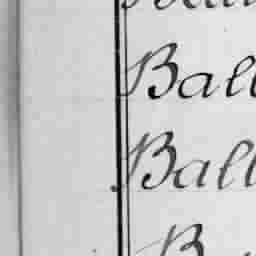 Ball
Ball
B